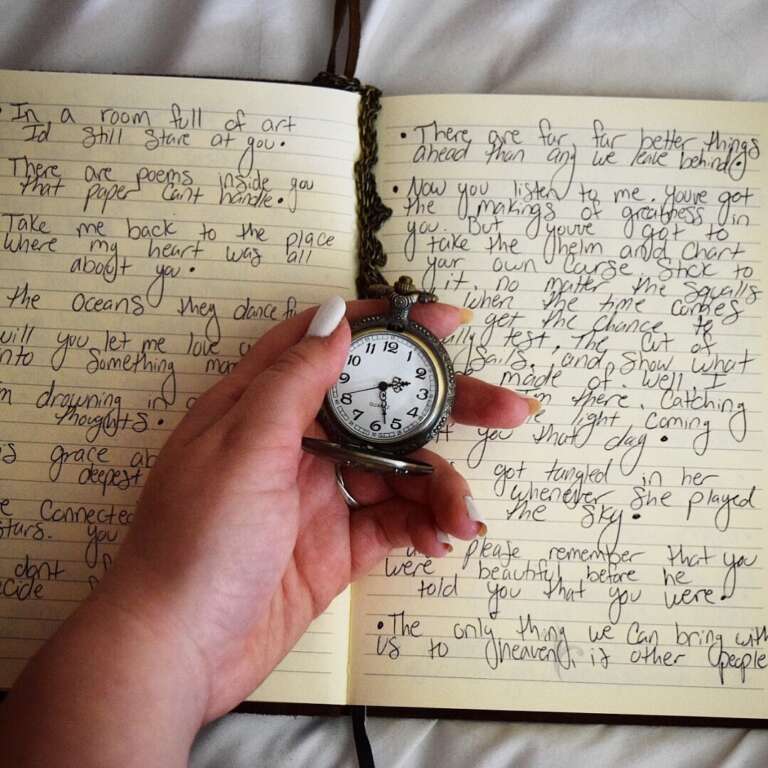 • In a room full of art
I'd still stare at you.
There are poems inside you
that paper can't handle.
Take me back to the place
where my heart was all
about you.
the oceans they dance
will you let me love
into something
drowning in
thoughts.
grace
deepest
connected
stars. you
dont
• There are far, far better things
ahead than any we leave behind.
• Now you listen to me. youve got
the makings of greatness in
you. But youve got to
take the helm and chart
your own course. Stick to
it, no mater the squalls
when the time comes
get the chance to
test, the cut of
sails, and show what
made of. well, I
I'm there. Catching
light coming
you that day.
got tangled in her
whenever she played
the sky.
please remember that you
were beautiful before he
told you that you were.
• The only thing we can bring with
us to heaven, is other people
12
1
2
3
4
5
6
7
8
9
10
11
QUARTZ